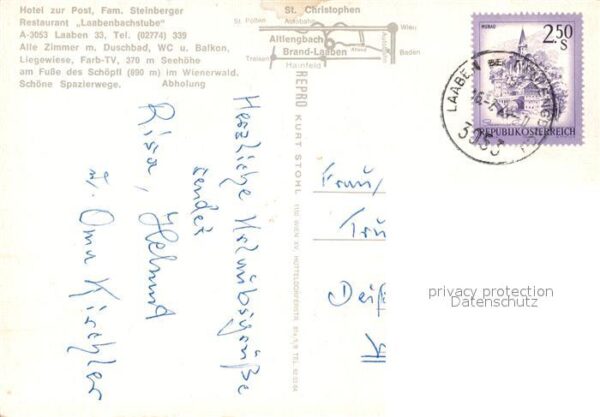 Hotel zur Post, Fam. Steinberger
Restaurant „Laabenbachstube"
A-3053 Laaben 33, Tel. (02774) 339
Alle Zimmer m. Duschbad, WC u. Balkon,
Liegewiese, Farb-TV, 370 m Seehöhe
am Fuße des Schöpfl (890 m) im Wienerwald.
Schöne Spazierwege.
St. Christophen
St. Pölten
Autobahn
Wien
Altlengbach
Brand-Laaben
Traisen
Hainfeld
Baden
Abholung
REPRO KURT STOHL
Herzliche Urlaubsgrüße
sendet
Risa, Helmut
u. Oma Kirchler
Frau
Tru
MURAU
2.50
S
REPUBLIK ÖSTERREICH
LAABEN BEI
3053
privacy protection
Datenschutz